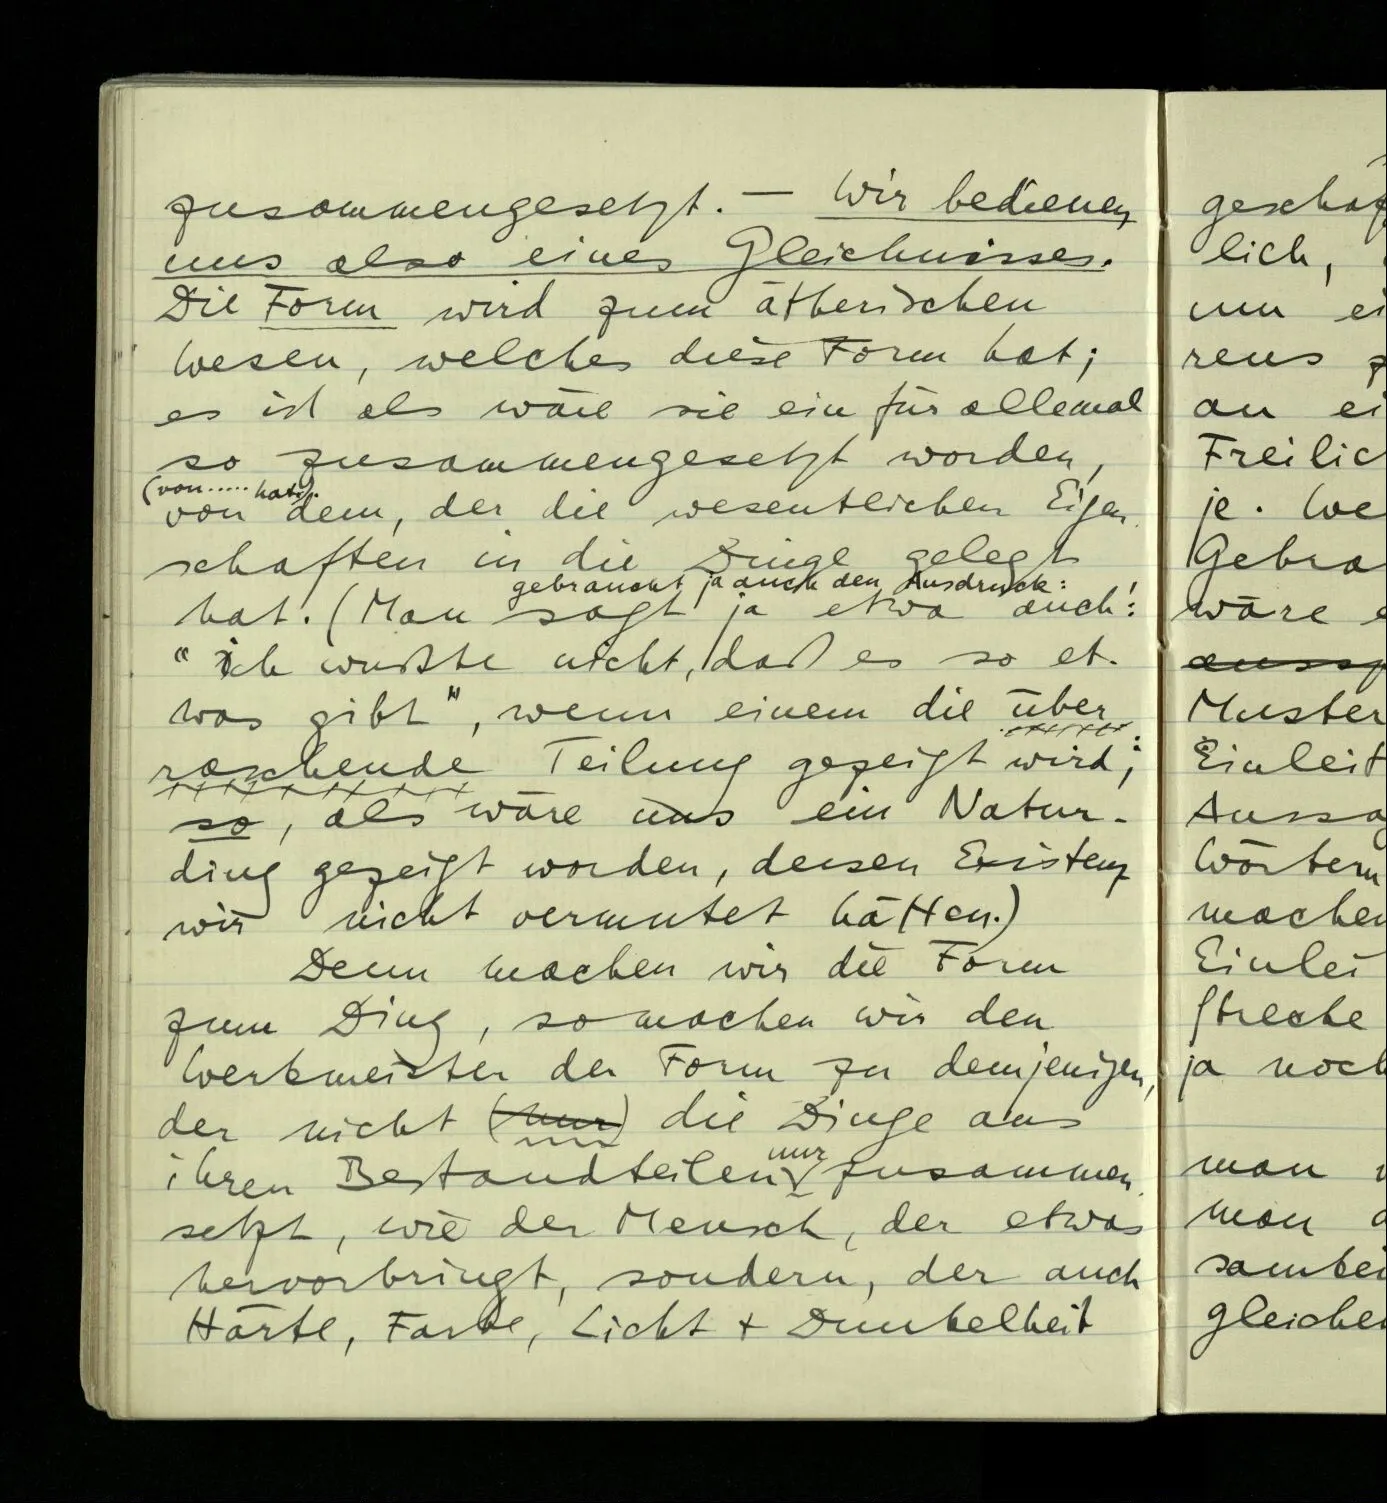 zusammengesetzt. – Wir bedienen
uns also eines Gleichnisses.
Die Form wird zum ätherischen
Wesen, welches diese Form hat;
es ist als wäre sie ein für allemal
so zusammengesetzt worden,
(von ..... hat).
von dem, der die wesentlichen Eigen-
schaften in die Dinge gelegt
gebraucht ja auch den Ausdruck:
hat. (Man sagt ja etwa auch:
"ich wußte nicht, daß es so et-
was gibt", wenn einem die über-
raschende Teilung gezeigt wird;
so, als wäre uns ein Natur-
ding gezeigt worden, dessen Existenz
wir nicht vermutet hätten.)
Denn machen wir die Form
zum Ding, so machen wir den
Werkmeister der Form zu demjenigen,
der nicht (nur) die Dinge aus
nur
ihren Bestandteilen zusammen-
setzt, wie der Mensch, der etwas
hervorbringt, sondern, der auch
Härte, Farbe, Licht + Dunkelheit
geschaf
lich,
um ei
rens z
an ei
Freilic
je. We
Gebra
wäre e
aussp
Muster
Einleit
Aussag
Wörtern
machen
Einlei
Strecke
ja noch
man
man
sambei
gleichen